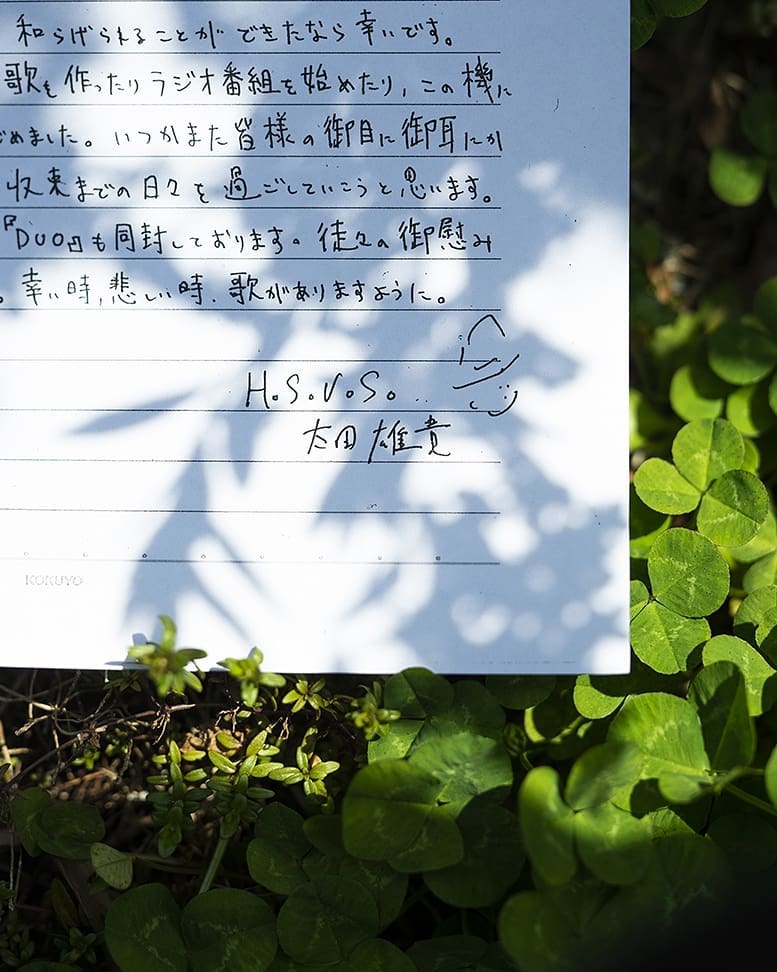 和らげられることができたなら幸いです。
歌を作ったりラジオ番組を始めたり、この機に
じめました。いつかまた皆様の御目に御耳にか
収束までの日々を過ごしていこうと思います。
『DUO』も同封しております。徒々の御慰み
。幸い時、悲しい時、歌がありますように。
H.S.V.S.
太田 雄貴
KOKUYO